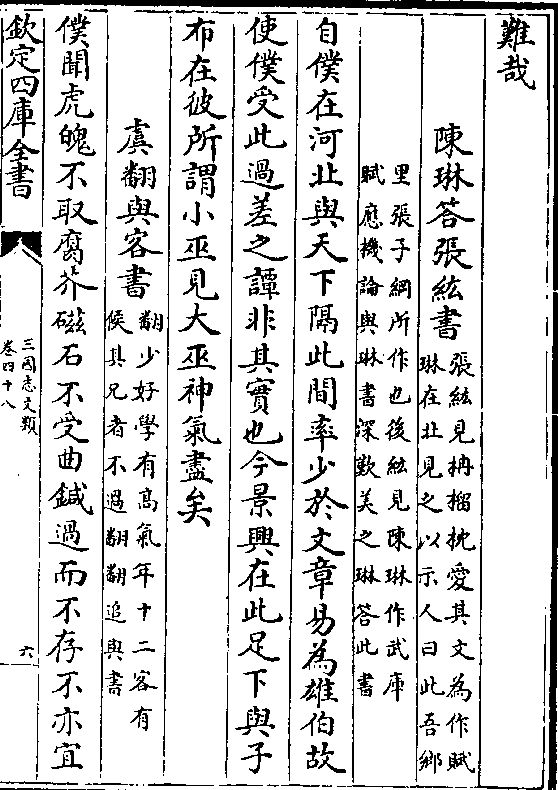 難哉
陳琳答張紘書
張紘見柟榴枕愛其文為作賦
琳在北見之以示人曰此吾鄉
里張子綱所作也後紘見陳琳作武庫
賦應機論與琳書深歎美之琳答此書
自僕在河北與天下隔此間率少於文章易為雄伯故
使僕受此過差之譚非其實也今景興在此足下與子
布在彼所謂小巫見大巫神氣盡矣
虞翻與客書
翻少好學有高氣年十二客有
候其兄者不過翻翻追與書
僕聞虎魄不取腐芥磁石不受曲鍼過而不存不亦宜
欽定四庫全書
三國志文類
卷四十八
六